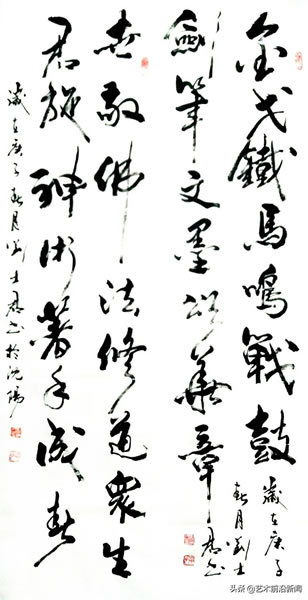 金戈鐵馬鳴戰鼓
劍筆文墨頌華章
歲在庚子
春月劉士君书
敬佛法修道眾生
君施神術著手成春
歲在庚子春月劉士君书於沈陽
头条 @艺术前沿新闻